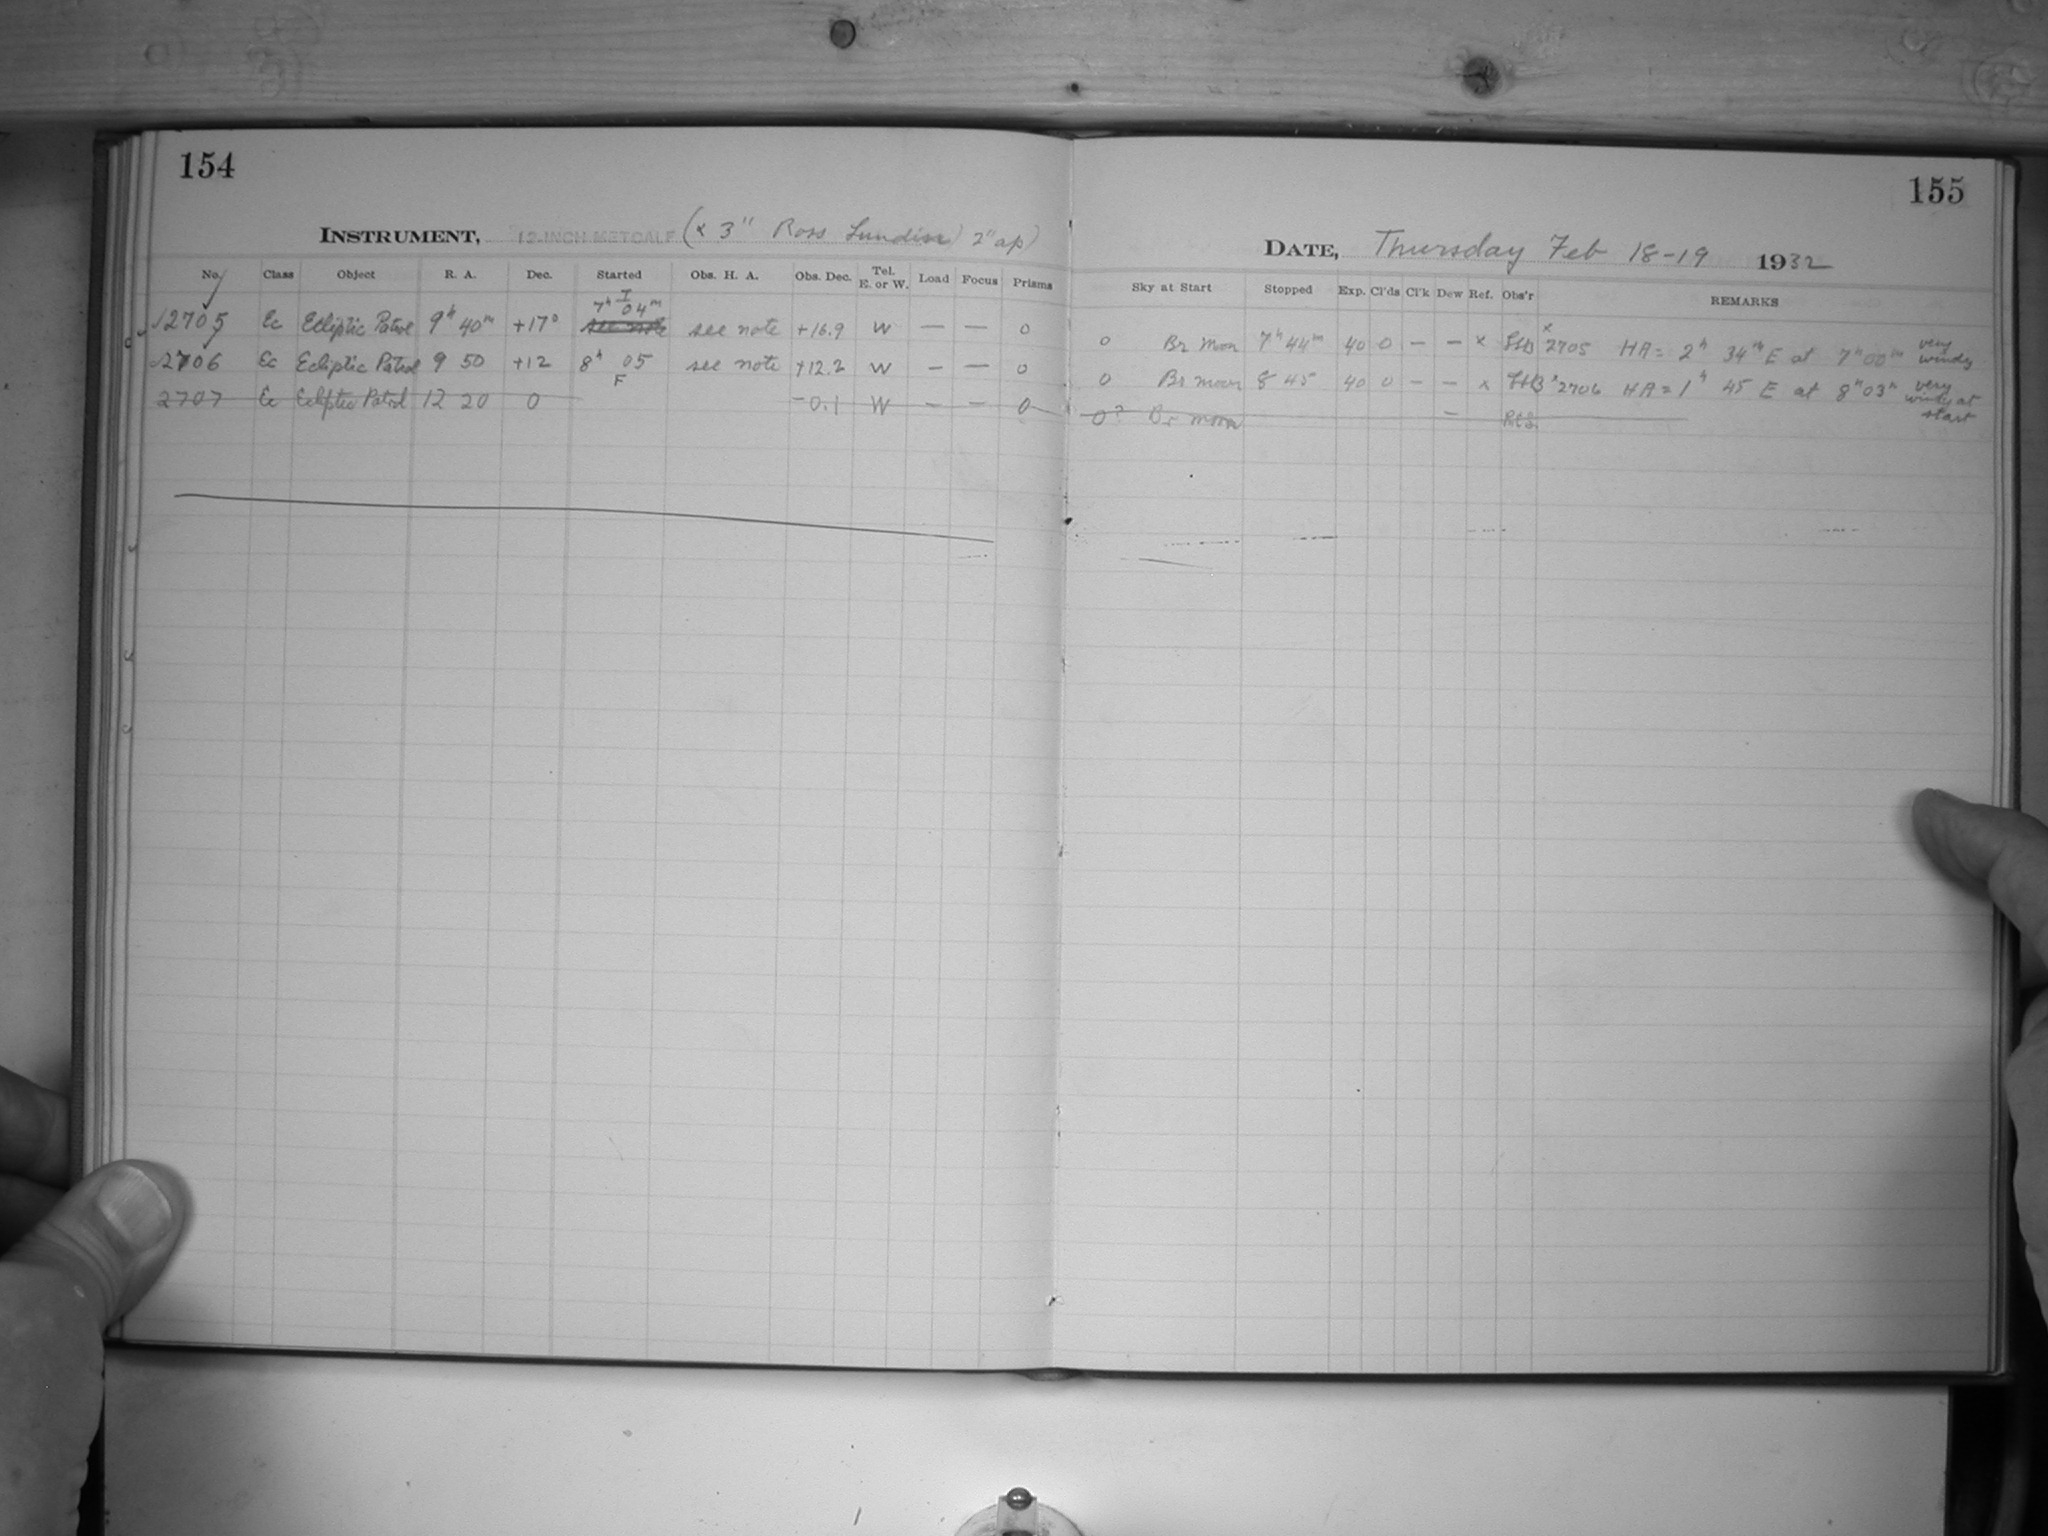 154
INSTRUMENT, 12-INCH METCALF (& 3" Ross Lundin) 2" ap)
No. Class Object R. A. Dec. Started Obs. H. A. Obs. Dec. Tel. E. or W. Load Focus Prisms
I
2705 Ec Ecliptic Patrol 9h 40m +17° 7h 04m see note see note +16.9 W — — 0
2706 Ec Ecliptic Patrol 9 50 +12 8h 05 see note +12.2 W — — 0
F
2707 Ec Ecliptic Patrol 12 20 0 -0.1 W — — 0
155
DATE, Thursday Feb 18-19 1932
Sky at Start Stopped Exp. Cl'ds Cl'k Dew Ref. Obs'r REMARKS
0 Br Moon 7h 44m 40 0 — — x x2705 HA = 2h 34m E at 7h 00m very windy
0 Br moon 8 45 40 0 — — x x2706 HA = 1h 45 E at 8h 03m very windy at start
0? Br moon —